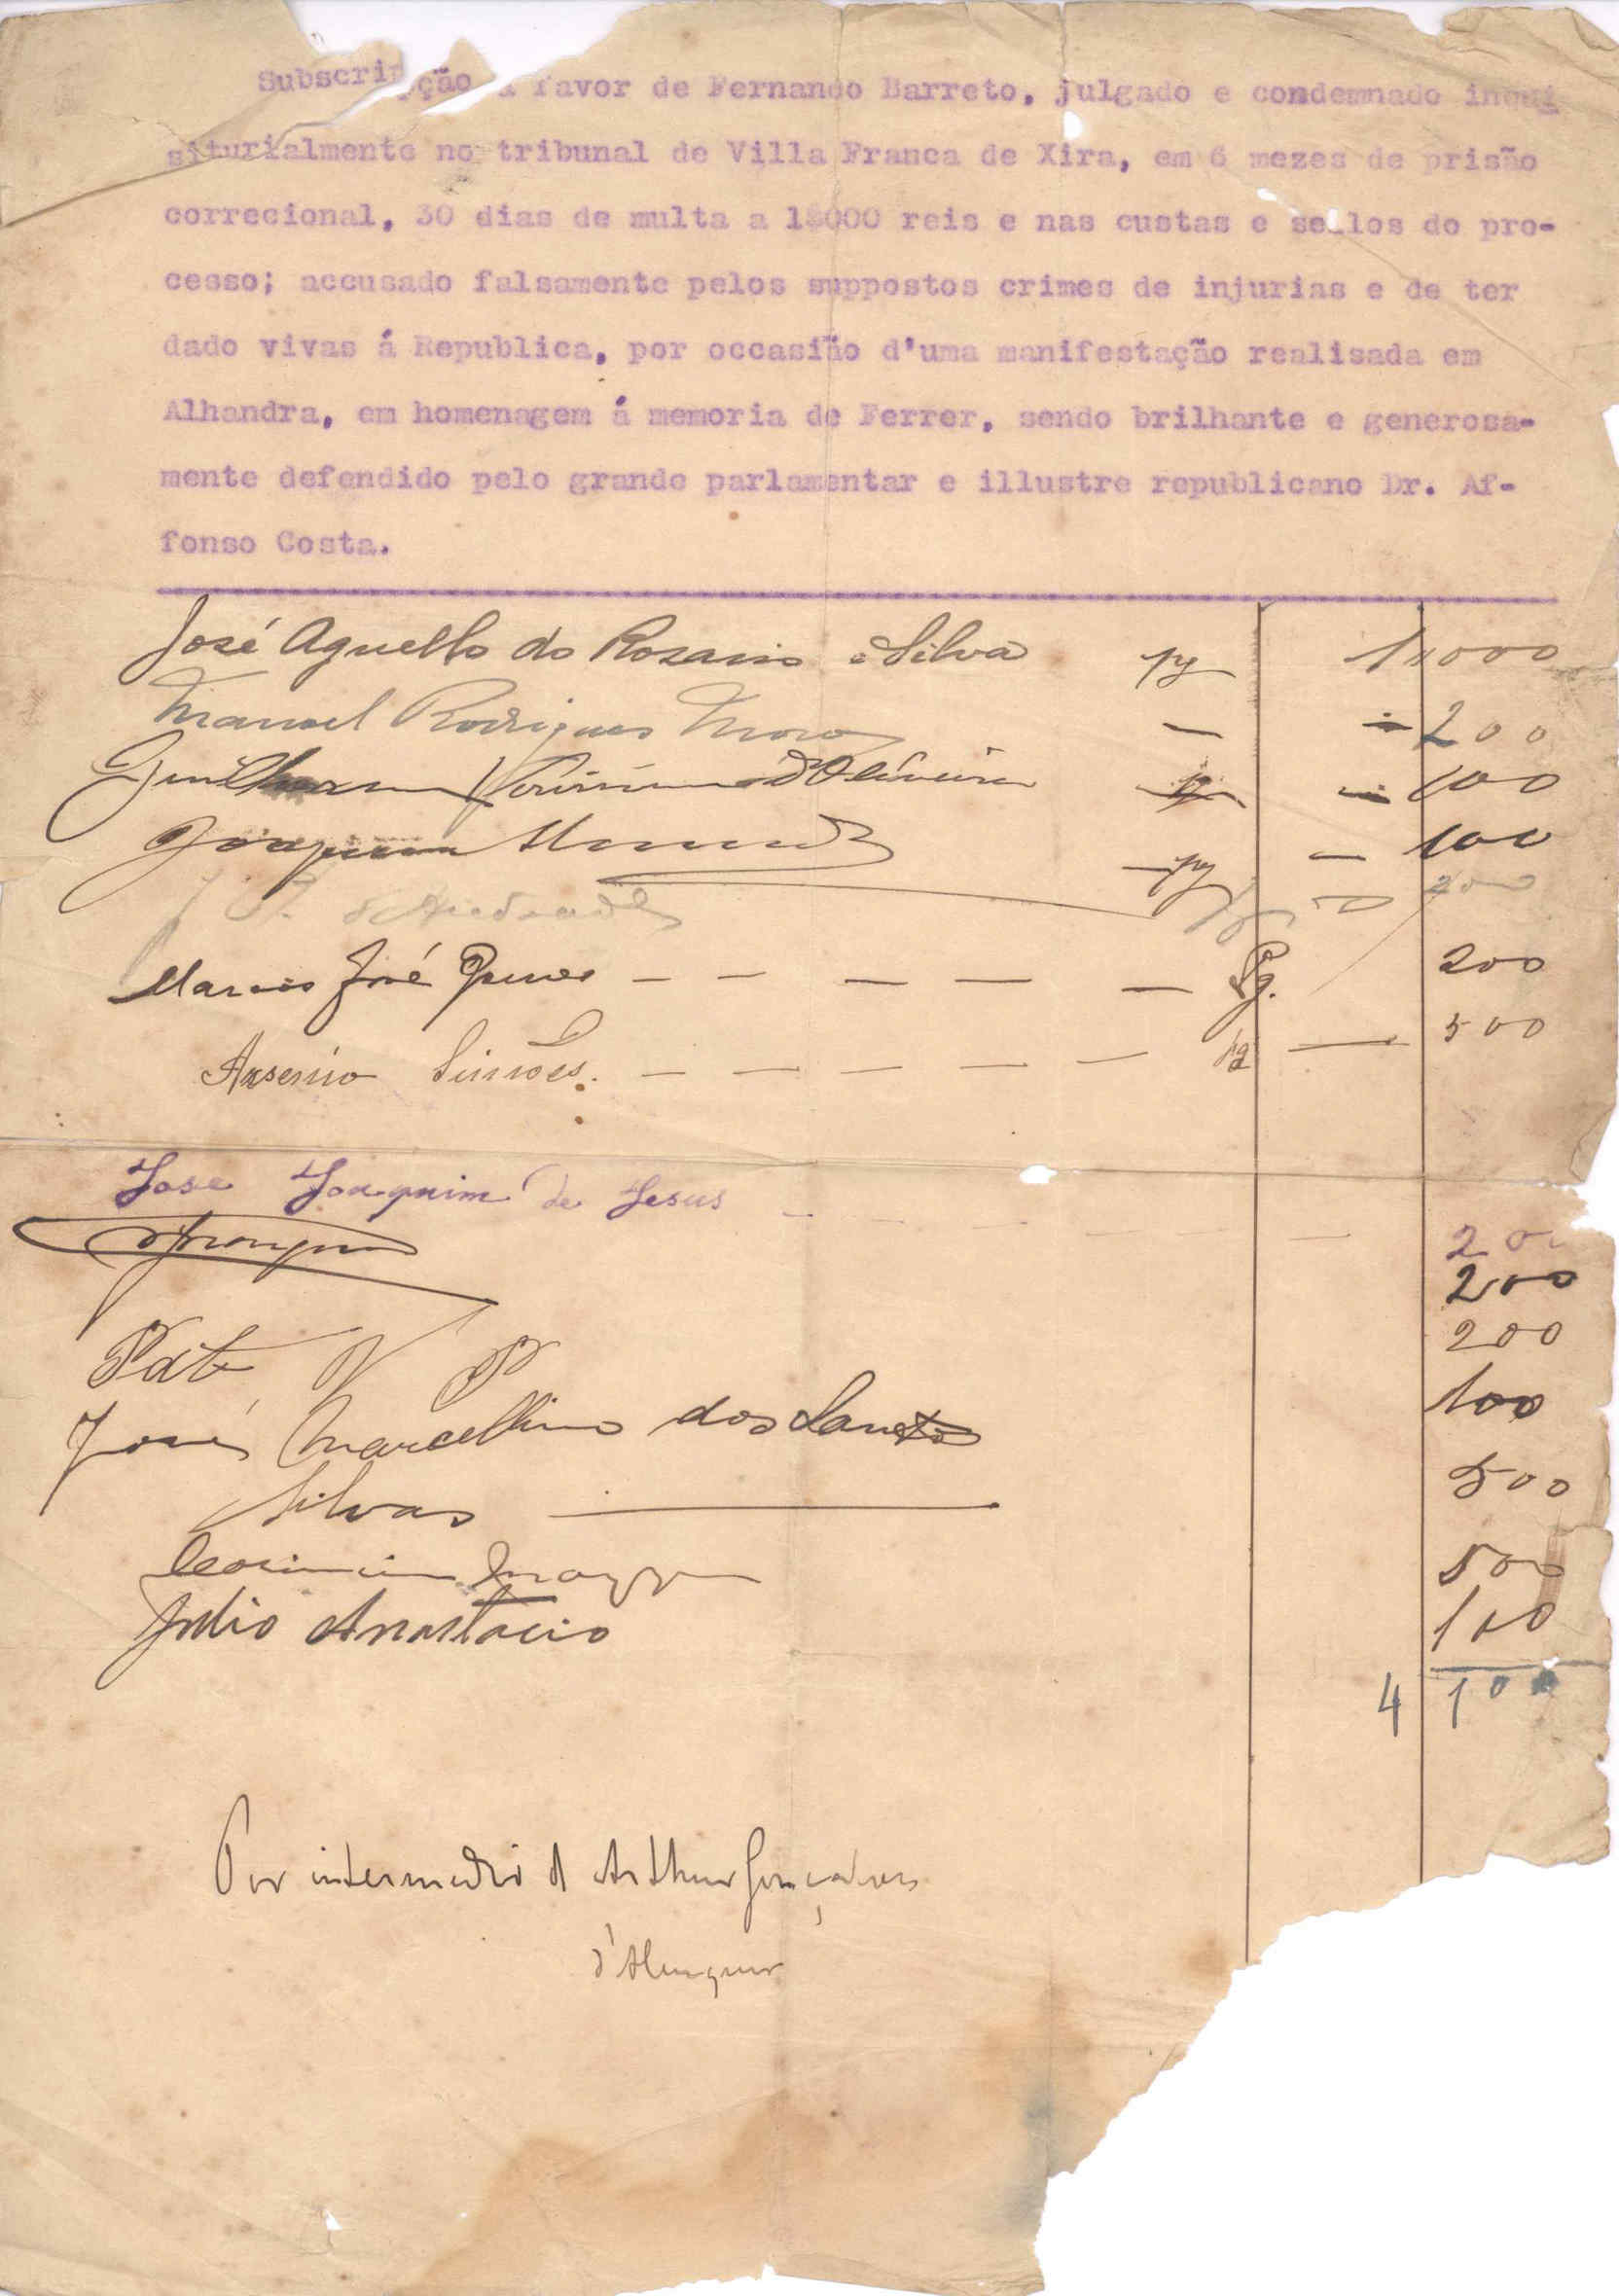 Subscripção a favor de Fernando Barreto, julgado e condemnado inqui
siturialmente no tribunal de Villa Franca de Xira, em 6 mezes de prisão
correcional, 30 dias de multa a 1$000 reis e nas custas e sellos do pro-
cesso; accusado falsamente pelos suppostos crimes de injurias e de ter
dado vivas á Republica, por occasião d'uma manifestação realisada em
Alhandra, em homenagem á memoria de Ferrer, sendo brilhante e generosa-
mente defendido pelo grande parlamentar e illustre republicano Dr. Af-
fonso Costa.
José Aguello do Rosario e Silva pg 1"000
Manuel Rodrigues — 200
Guilherme d'Oliveira pg — 100
Joaquim — pg — 100
d'Andrade 200
José — — — — — Pg. 200
Arsenio Simões. — — — — — pg — 500
Jose Joaquim de Jesus — — — — — 200
200
200
José Marcellino dos Santos 100
Silvas — 500
500
Julio Anastacio 100
4 100
Por intermedio d Arthur Gonçalves
d'Alemquer